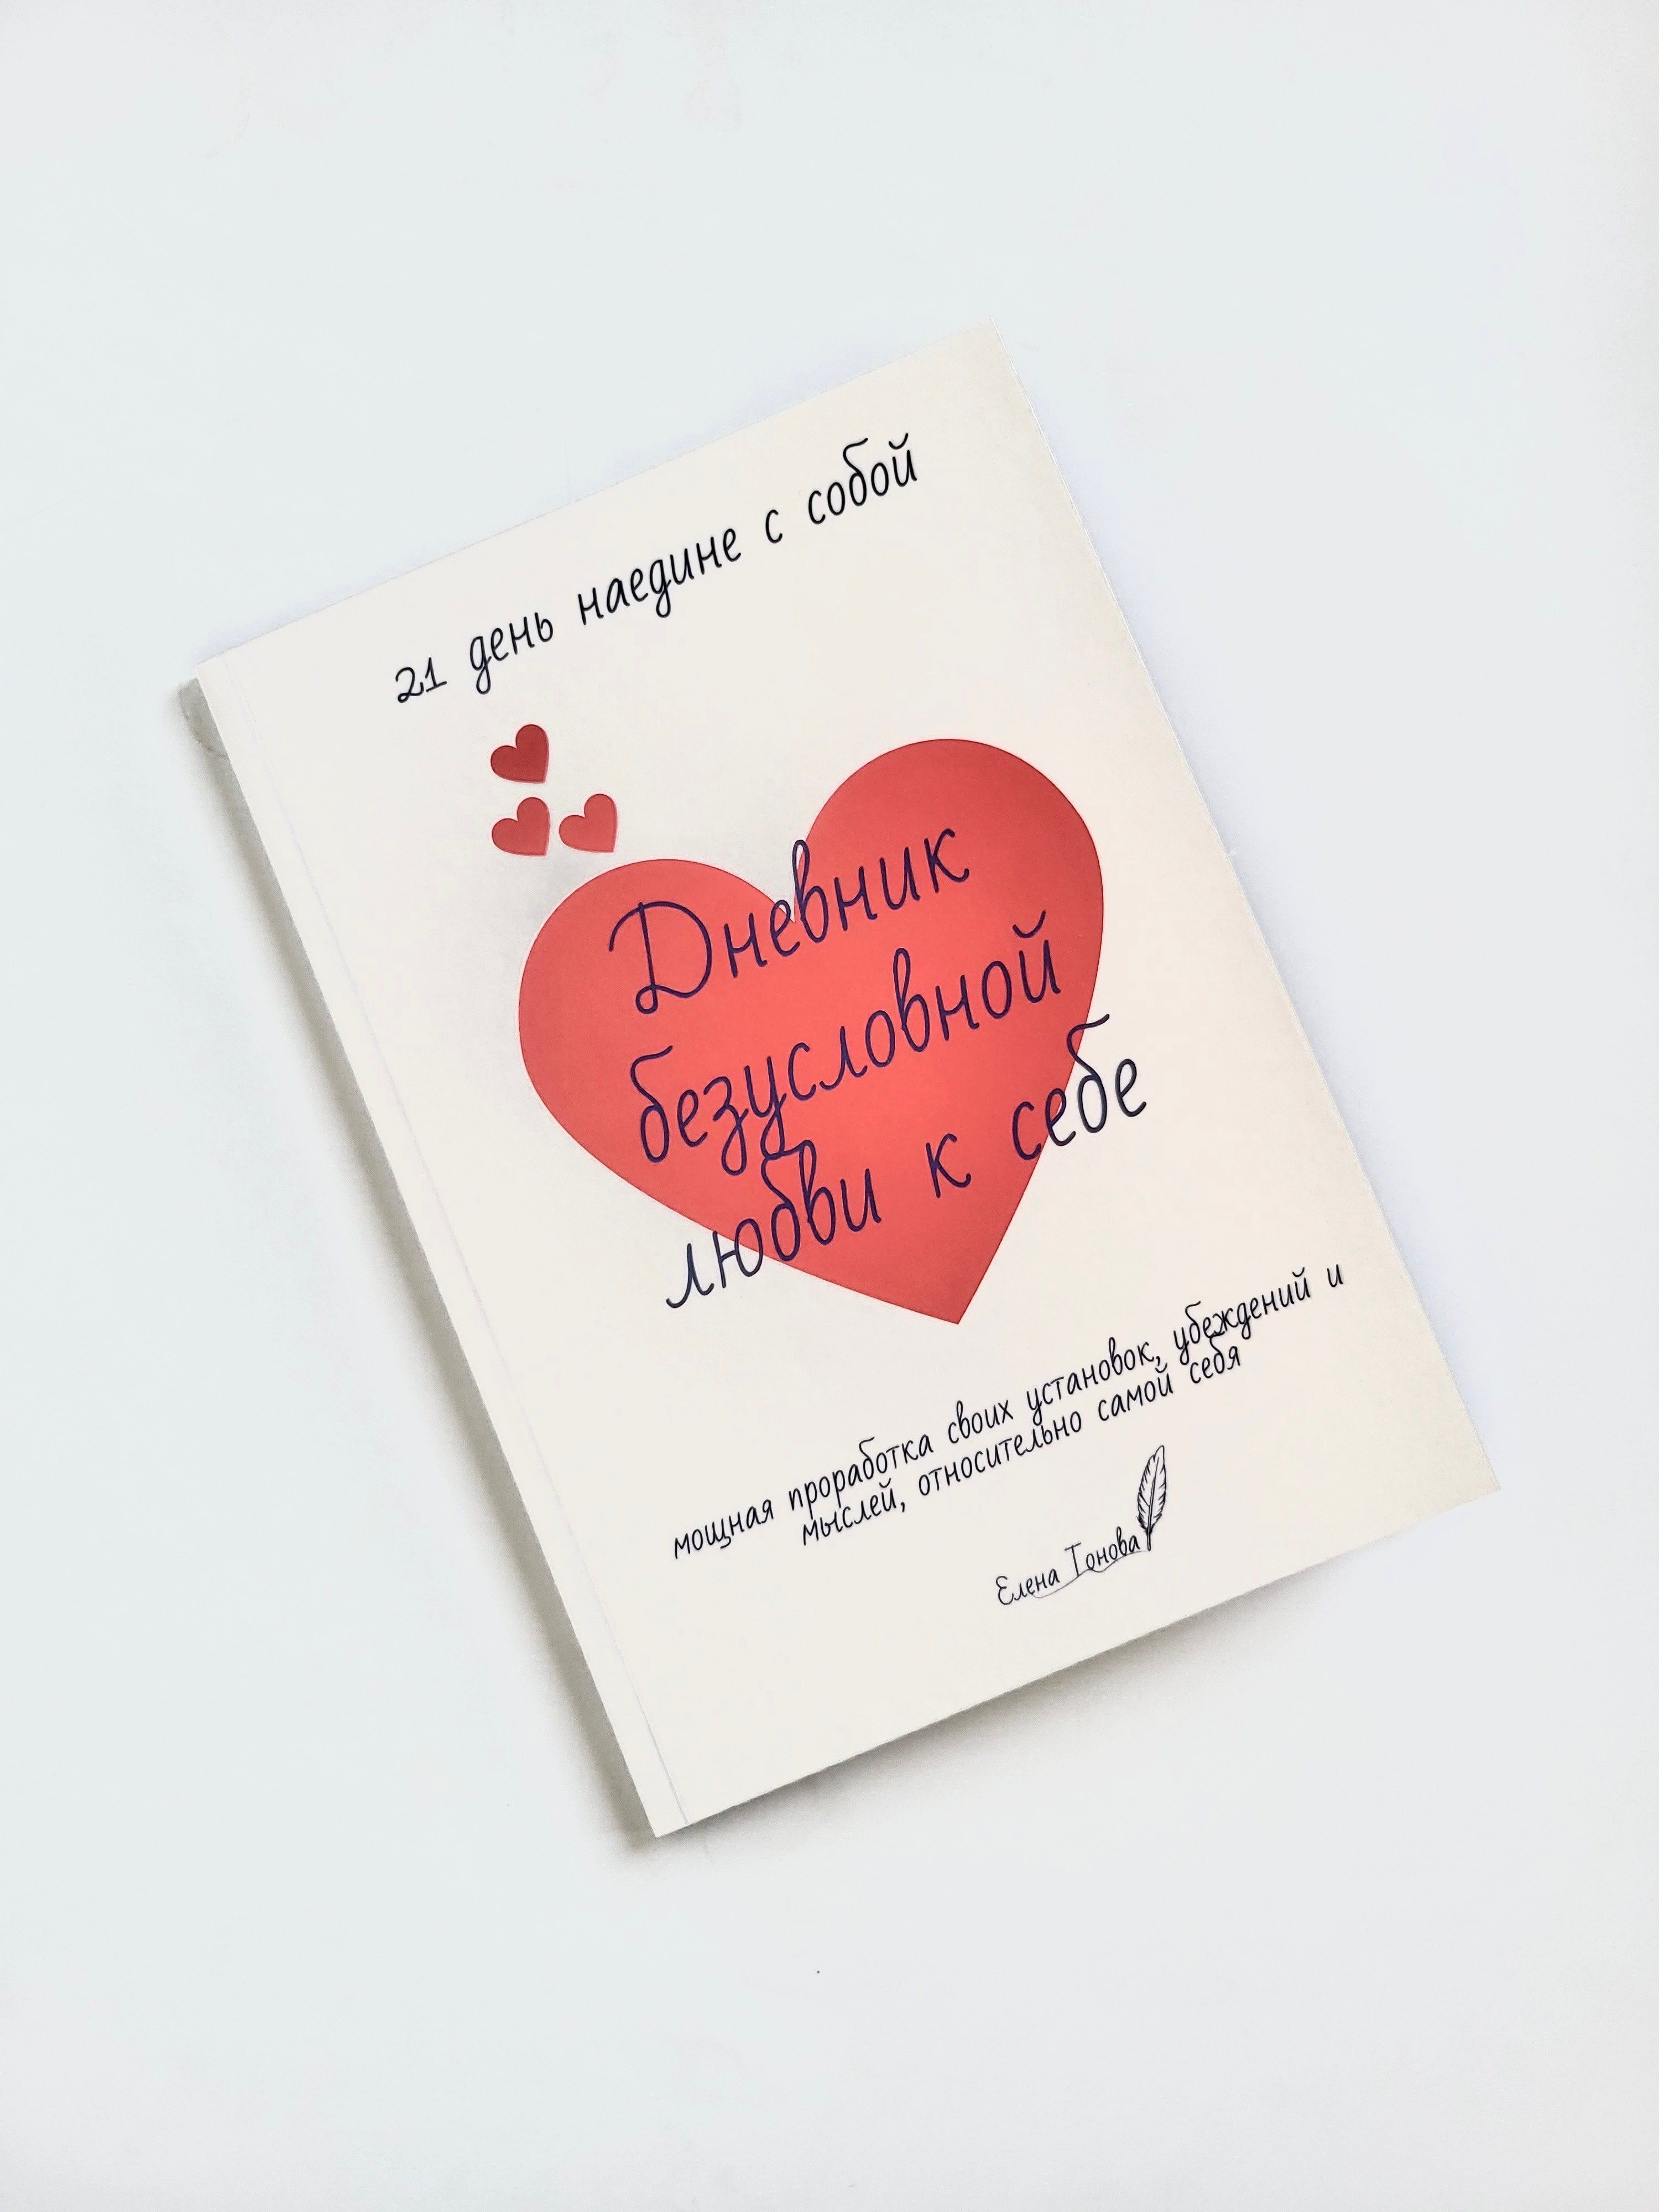 21 день наедине с собой
Дневник
безусловной
любви к себе
мощная проработка своих установок, убеждений и
мыслей, относительно самой себя
Елена Тонова